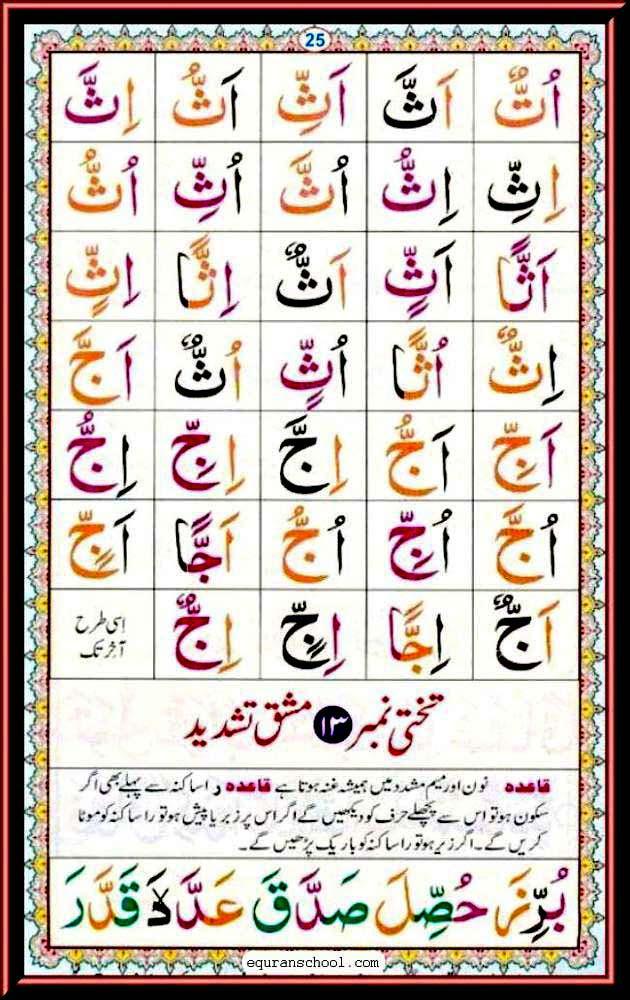 25
اُتٌّ اَثَّ اَثِّ اَثُّ اِثَّ
اِثِّ اِثُّ اُثَّ اُثِّ اُثُّ
اَثًّا اَثٍّ اَثٌّ اِثًّا اِثٍّ
اِثٌّ اُثًّا اُثٍّ اُثٌّ اَجَّ
اَجِّ اَجُّ اِجَّ اِجِّ اِجُّ
اُجَّ اُجِّ اُجُّ اَجًّا اَجٍّ
اَجٌّ اِجًّا اِجٍّ اِجٌّ اسی طرح آخر تک
تختی نمبر ۱۳ مشق تشدید
قاعدہ نون اور میم مشدد میں ہمیشہ غنہ ہوتا ہے قاعدہ را ساکنہ سے پہلے بھی اگر
سکون ہو تو اس سے پچھلے حرف کو دیکھیں گے اگر اس پر زبر یا پیش ہو تو را ساکنہ کو موٹا
کریں گے۔ اگر زیر ہو تو را ساکنہ کو باریک پڑھیں گے۔
بُرِّزَ حُصِّلَ صَدَّقَ قَدَّرَ
equranschool.com